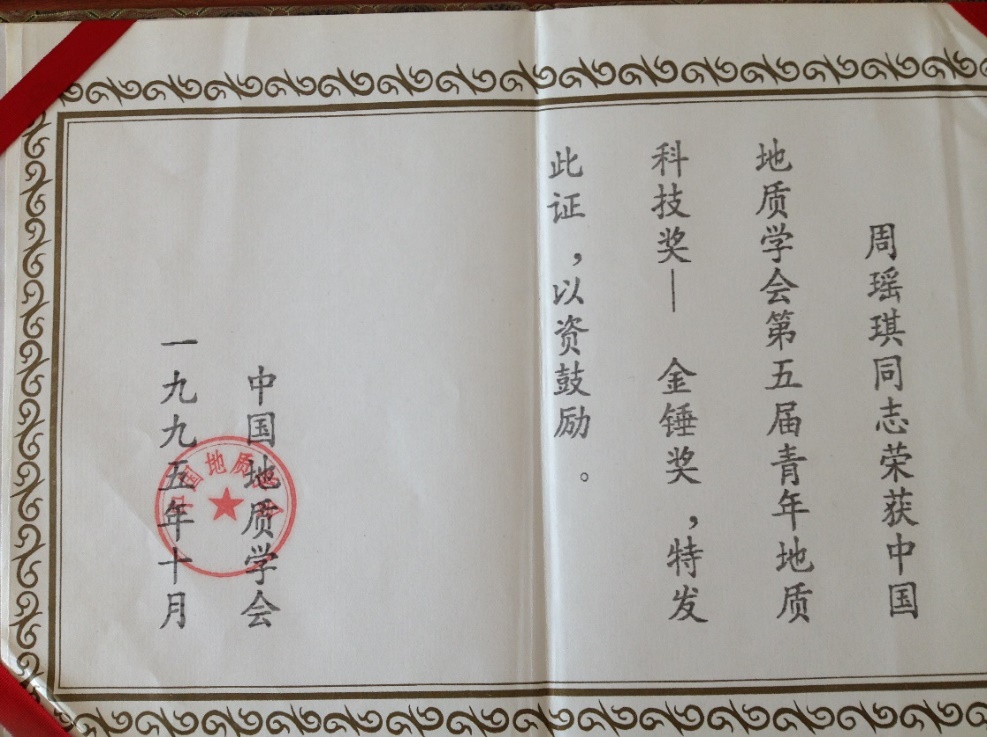 周瑶琪同志荣获中国
地质学会第五届青年地质
科技奖—金锤奖，特发
此证，以资鼓励。
中国地质学会
一九九五年十月
中国地质学会